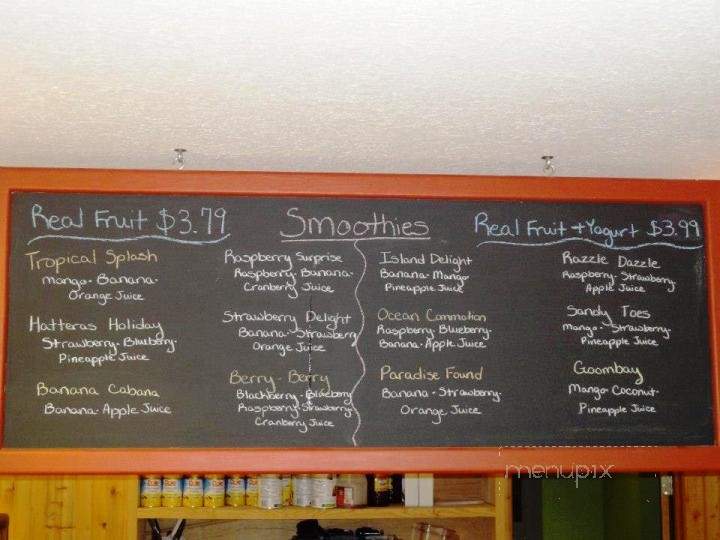 Smoothies
Real Fruit $3.79
Tropical Splash
Mango - Banana -
Orange Juice
Hatteras Holiday
Strawberry - Blueberry -
Pineapple Juice
Banana Cabana
Banana - Apple Juice
Raspberry Surprise
Raspberry - Banana -
Cranberry Juice
Strawberry Delight
Banana - Strawberry
Orange Juice
Berry - Berry
Blackberry - Blueberry
Raspberry - Strawberry -
Cranberry Juice
Real Fruit + Yogurt $3.99
Island Delight
Banana - Mango
Pineapple Juice
Ocean Commotion
Raspberry - Blueberry -
Banana - Apple Juice
Paradise Found
Banana - Strawberry -
Orange Juice
Razzle Dazzle
Raspberry - Strawberry
Apple Juice
Sandy Toes
Mango - Strawberry -
Pineapple Juice
Goombay
Mango - Coconut -
Pineapple Juice
menupix